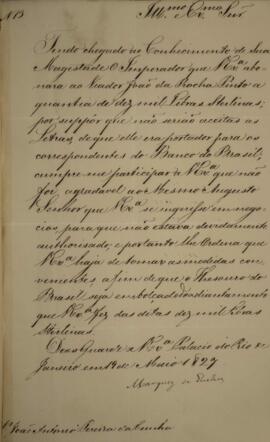 Nº 13
Illmo. e Exmo. Snr.
Tendo chegado ao Conhecimento de Sua
Magestade O Imperador que V. Exª abo
nara ao Veador João da Rocha Pinto a
quantia de dez mil Libras Sterlinas;
por suppôr que não serião acceitas as
Letras de que elle era portador para os
correspondentes do Banco do Brasil;
cumpre-me participar a V. Exª que não
foi agradavel ao Mesmo Augusto
Senhor que V. Exª se ingerisse em nego
cios, para que não estava devidamente
authorisado, e portanto lhe Ordena que
V. Exª haja de tomar as medidas con
venientes, a fim de que o Thesouro do
Brasil seja embolsado do adiantamento
que V. Exª fez das ditas dez mil Libras
Sterlinas.
Deos Guarde a V. Exª Palacio do Rio de
Janeiro em 14 de Maio 1827
Marquez de
João Antonio Pereira da Cunha